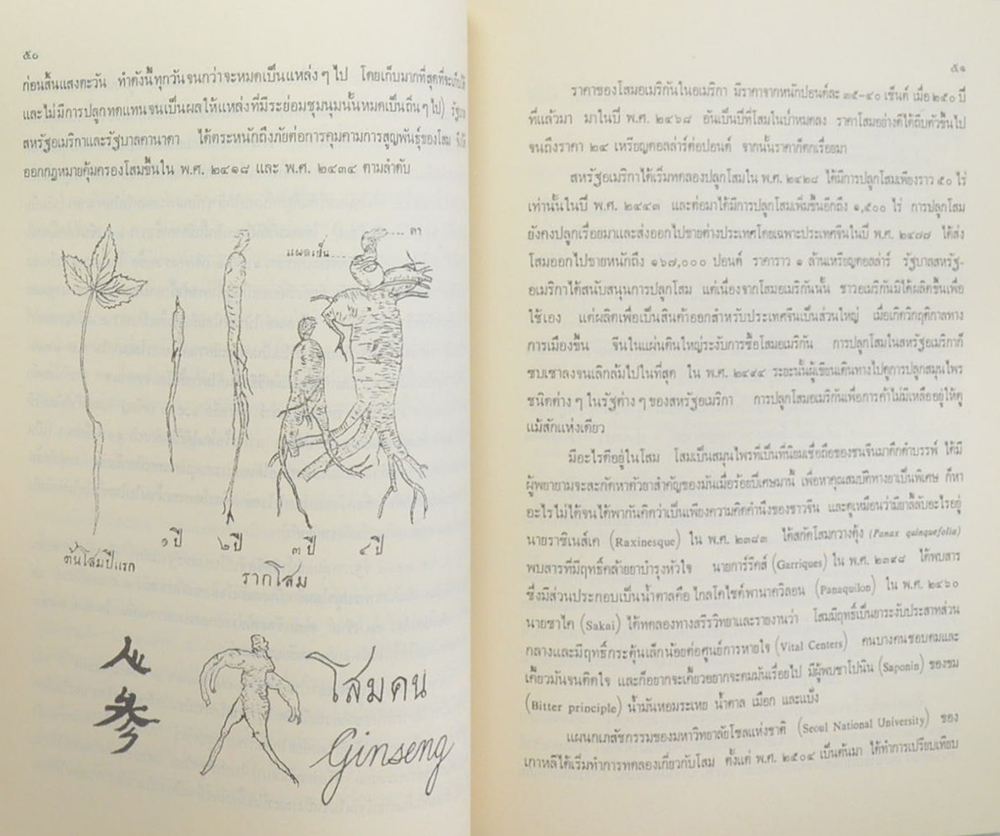 ๕๐
ก่อนสิ้นแสงตะวัน ทำดังนี้ทุกวันจนกว่าจะหมดเป็นแหล่งๆ ไป โดยเก็บมากที่สุดที่จะเก็บได้
และไม่มีการปลูกทดแทนจนเป็นผลให้แหล่งที่มีระย่อมชุมนุมนั้นหมดเป็นถิ่นๆ ไป) รัฐบาล
สหรัฐอเมริกาและรัฐบาลคานาดา ได้ตระหนักถึงภัยต่อการคุมคามการสูญพันธุ์ของโสม จึงได้
ออกกฎหมายคุ้มครองโสมขึ้นใน พ.ศ. ๒๔๑๘ และ พ.ศ. ๒๔๓๔ ตามลำดับ
ตา
แผลเป็น
ต้นโสมปีแรก
๑ ปี
๒ ปี
๓ ปี
๔ ปี
รากโสม
人
參
โสมคน
Ginseng
๕๑
ราคาของโสมอเมริกันในอเมริกา มีราคาจากหนักปอนด์ละ ๓๕-๔๐ เซ็นต์ เมื่อ ๒๕๐ ปี
ที่แล้วมา มาในปี พ.ศ. ๒๔๖๘ อันเป็นปีที่โสมในป่าหมดลง ราคาโสมอย่างดีได้ถีบตัวขึ้นไป
จนถึงราคา ๒๔ เหรียญดอลล่าร์ต่อปอนด์ จากนั้นราคาก็ตกเรื่อยมา
สหรัฐอเมริกาได้เริ่มทดลองปลูกโสมใน พ.ศ. ๒๔๒๘ ได้มีการปลูกโสมเพียงราว ๕๐ ไร่
เท่านั้นในปี พ.ศ. ๒๔๔๓ และต่อมาได้มีการปลูกโสมเพิ่มขึ้นอีกถึง ๑,๕๐๐ ไร่ การปลูกโสม
ยังคงปลูกเรื่อยมาและส่งออกไปขายต่างประเทศโดยเฉพาะประเทศจีนในปี พ.ศ. ๒๔๗๗ ได้ส่ง
โสมออกไปขายหนักถึง ๑๖๗,๐๐๐ ปอนด์ ราคาราว ๑ ล้านเหรียญดอลล่าร์ รัฐบาลสหรัฐ-
อเมริกาได้สนับสนุนการปลูกโสม แต่เนื่องจากโสมอเมริกันนั้น ชาวอเมริกันมิได้ผลิตขึ้นเพื่อ
ใช้เอง แต่ผลิตเพื่อเป็นสินค้าออกสำหรับประเทศจีนเป็นส่วนใหญ่ เมื่อเกิดวิกฤติกาลทาง
การเมืองขึ้น จีนในแผ่นดินใหญ่ระงับการซื้อโสมอเมริกัน การปลูกโสมในสหรัฐอเมริกาก็
ซบเซาลงจนเลิกล้มไปในที่สุด ใน พ.ศ. ๒๔๙๔ ระยะนั้นผู้เขียนเดินทางไปดูการปลูกสมุนไพร
ชนิดต่างๆ ในรัฐต่างๆ ของสหรัฐอเมริกา การปลูกโสมอเมริกันเพื่อการค้าไม่มีเหลืออยู่ให้ดู
แม้สักแห่งเดียว
มีอะไรดีอยู่ในโสม โสมเป็นสมุนไพรที่เป็นที่นิยมเชื่อถือของชนจีนมาดึกดำบรรพ์ ได้มี
ผู้พยายามจะสะกัดหาตัวยาสำคัญของมันเมื่อร้อยปีเศษมานี้ เพื่อหาคุณสมบัติทางยาเป็นพิเศษ ก็หา
อะไรไม่ได้จนได้พากันคิดว่าเป็นเพียงความคิดคำนึงของชาวจีน และดูเหมือนว่ามียาลี้ลับอะไรอยู่
นายราชิเนส์เค (Raxinesque) ใน พ.ศ. ๒๓๘๓ ได้สกัดโสมกวางตุ้ง (Panax quinquefolia)
พบสารที่มีฤทธิ์คล้ายยาบำรุงหัวใจ นายการ์ริคีส์ (Garriques) ใน พ.ศ. ๒๓๙๘ ได้พบสาร
ซึ่งมีส่วนประกอบเป็นน้ำตาลคือ ไกลโคไซด์พานาควิลอน (Panaquilon) ใน พ.ศ. ๒๔๖๐
นายซาไค (Sakai) ได้ทดลองทางสรีรวิทยาและรายงานว่า โสมมีฤทธิ์เป็นยาระงับประสาทส่วน
กลางและมีฤทธิ์กระตุ้นเล็กน้อยต่อศูนย์การหายใจ (Vital Centers) คนบางคนชอบคมและ
เคี้ยวมันจนติดใจ และก็อยากจะเคี้ยวอยากจะคมมันเรื่อยไป มีผู้พบซาโปนิน (Saponin) ของขม
(Bitter principle) น้ำมันหอมระเหย น้ำตาล เมือก และแป้ง
แผนกเภสัชกรรมของมหาวิทยาลัยโซลแห่งชาติ (Seoul National University) ของ
เกาหลีได้เริ่มทำการทดลองเกี่ยวกับโสม ตั้งแต่ พ.ศ. ๒๕๐๔ เป็นต้นมา ได้ทำการเปรียบเทียบ